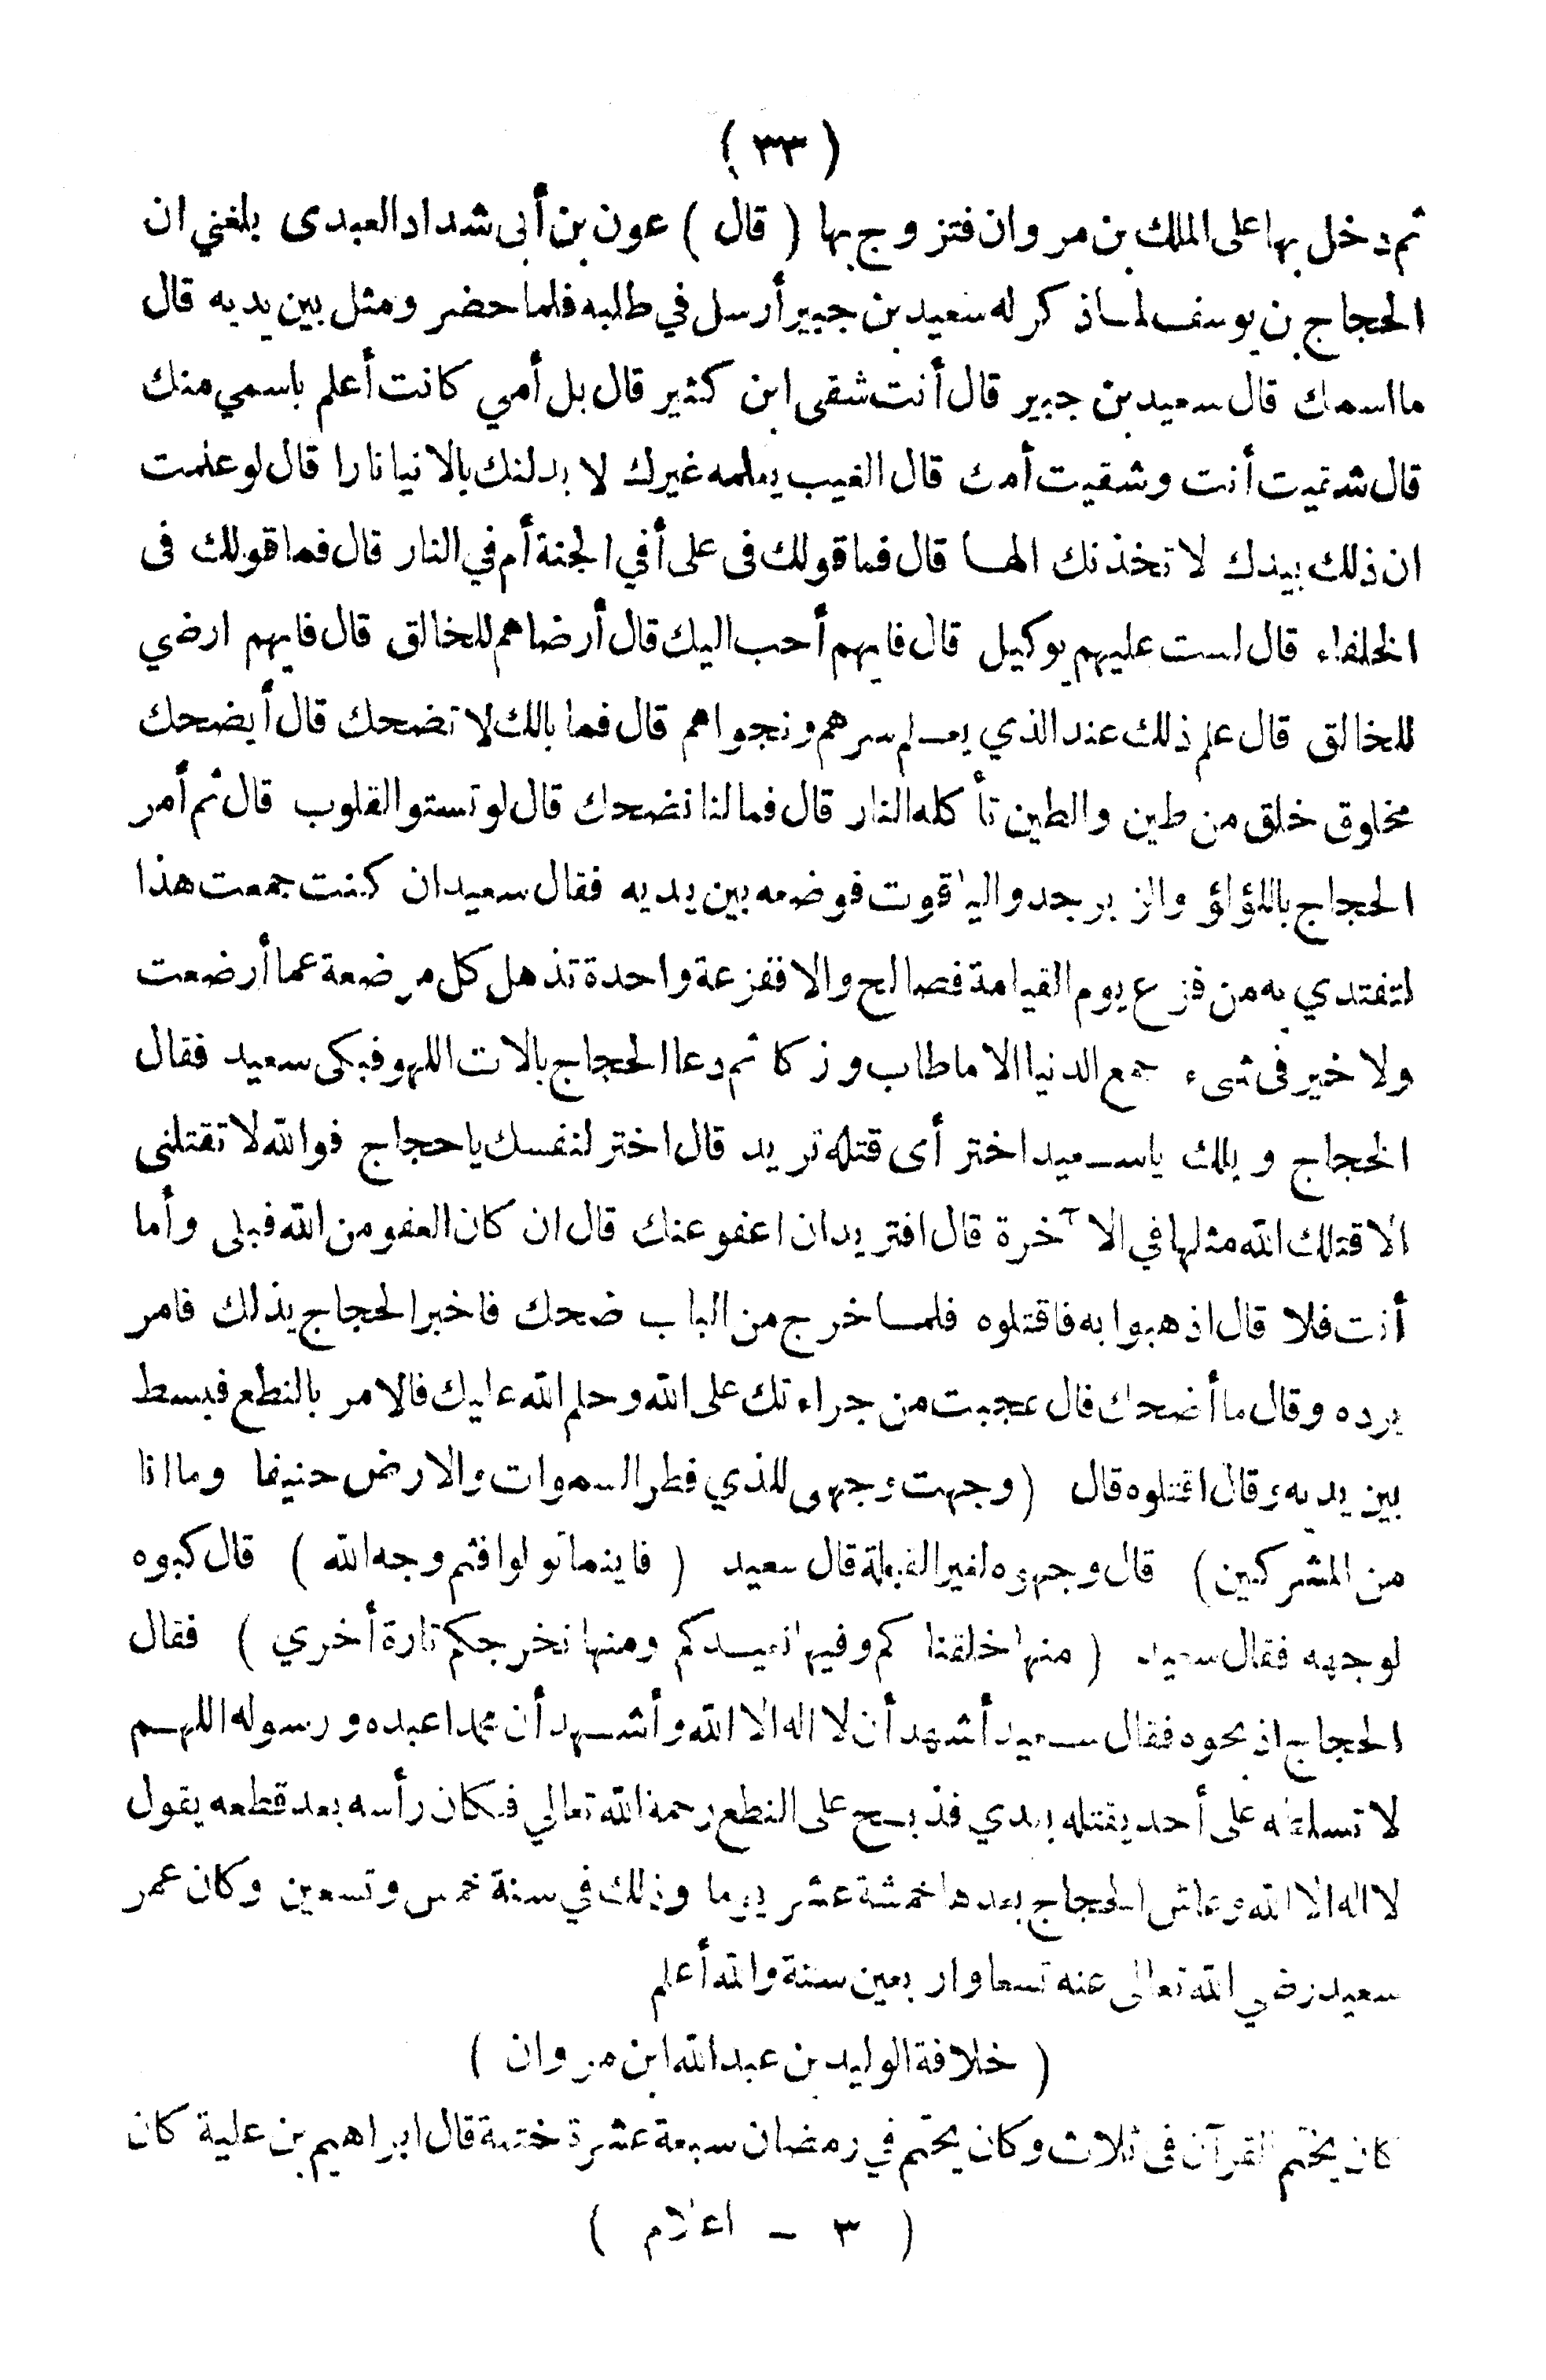 ( ٣٣ )
ثم دخل بها على الملك بن مروان فتزوج بها ( قال ) عون بن أبى شداد العبدى بلغني ان
الحجاج بن يوسف لما ذكر له سعيد بن جبير أرسل في طلبه فلما حضر ومثل بين يديه قال
ما اسمك قال سعيد بن جبير قال أنت شقى ابن كثير قال بل أمي كانت أعلم باسمي منك
قال شقيت أنت وشقيت أمك قال الغيب يعلمه غيرك لا بدلنك بالانيا نارا قال لو علمت
ان ذلك بيدك لا تخذنك الها قال فما قولك فى على أفي الجنة أم في النار قال فما قولك فى
الخلفاء قال لست عليهم بوكيل قال فايهم أحب اليك قال أرضاهم للخالق قال فايهم ارضي
للخالق قال علم ذلك عند الذي يعلم سرهم ونجواهم قال فما بالك لا تضحك قال أيضحك
مخلوق خلق من طين والطين تأكله النار قال فما لنا نضحك قال لو تستو القلوب قال ثم أمر
الحجاج باللؤلؤ والزبرجد والياقوت فوضعه بين يديه فقال سعيد ان كنت جمعت هذا
لتفتدي به من فزع يوم القيامة فصالح والا ففزعة واحدة تذهل كل مرضعة عما أرضعت
ولا خير فى شىء جمع الدنيا الا ما طاب وزكا ثم دعا الحجاج بالات اللهو فبكى سعيد فقال
الحجاج ويلك ياسعيد اختر أى قتله تريد قال اختر لنفسك يا حجاج فوالله لا تقتلنى
الا قتلك الله مثلها في الآخرة قال افتريد ان اعفو عنك قال ان كان العفو من الله فبلى وأما
أنت فلا قال اذهبوا به فاقتلوه فلما خرج من الباب ضحك فاخبر الحجاج بذلك فامر
برده وقال ما أضحك قال عجبت من جراءتك على الله وحلم الله عليك فالامر بالنطع فبسط
بين يديه وقال اقتلوه قال ( وجهت وجهى للذي فطر السموات والارض حنيفا وما انا
من المشركين ) قال وجهوه لغير القبلة قال سعيد ( فاينما تولوا فثم وجه الله ) قال كبوه
لوجهه فقال سعيد ( منها خلقناكم وفيها نعيدكم ومنها نخرجكم تارة أخري ) فقال
الحجاج اذبحوه فقال سعيد أشهد أن لا اله الا الله وأشهد أن محمدا عبده ورسوله اللهم
لا تسلطه على أحد يقتله بعدي فذبح على النطع رحمة الله تعالي فكان رأسه بعد قطعه يقول
لا اله الا الله وعاش الحجاج بعدها خمسة عشر يوما وذلك في سنة خمس وتسعين وكان عمر
سعيد رضي الله تعالى عنه تسعا واربعين سنة والله أعلم
( خلافة الوليد بن عبد الله ابن مروان )
كان يختم القرآن فى ثلاث وكان يختم في رمضان سبعة عشرة ختمة قال ابراهيم بن علية كان
( ٣ – اعلام )